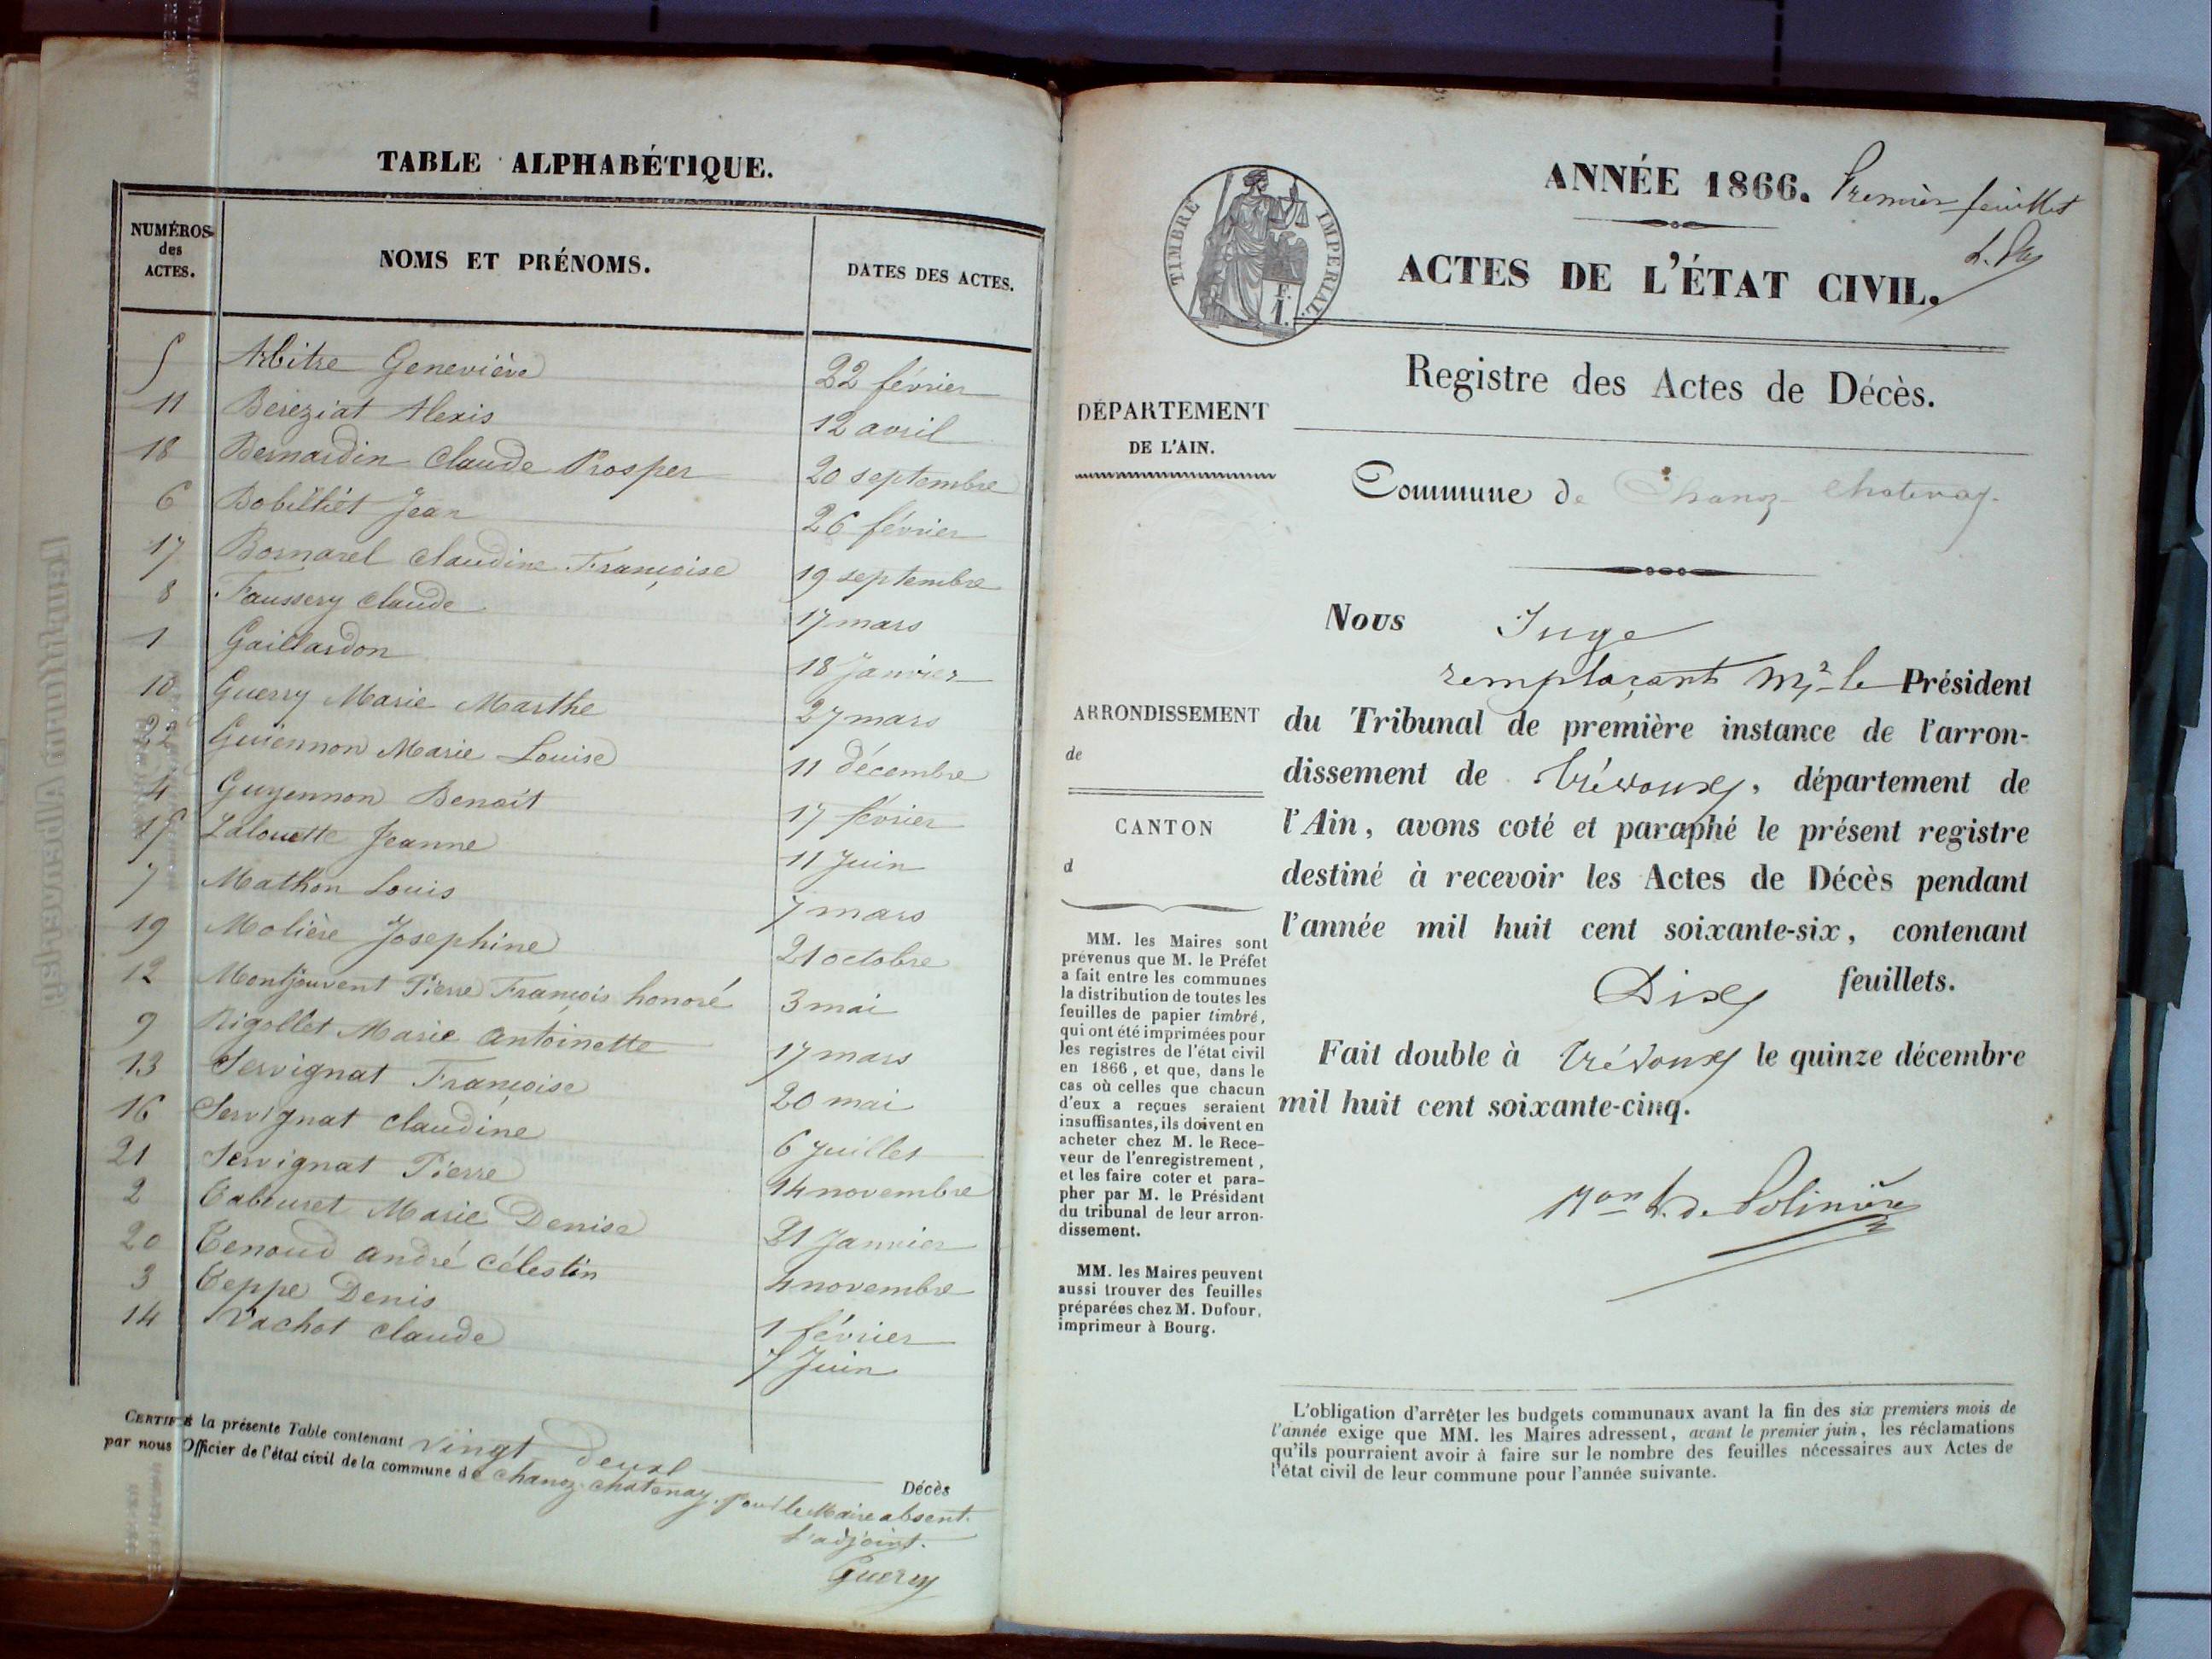 TABLE ALPHABÉTIQUE.
NUMÉROS des ACTES. NOMS ET PRÉNOMS. DATES DES ACTES.
5 Arbitre Geneviève 22 février
11 Bereziat Alexis 12 avril
18 Bernardin Claude Prosper 20 septembre
6 Bobilliet Jean 26 février
17 Bornarel Claudine Françoise 19 septembre
8 Faussery Claude 17 mars
1 Gaillardon 18 Janvier
10 Guerry Marie Marthe 27 mars
22 Guiennon Marie Louise 11 décembre
4 Guyennon Benoit 17 février
15 Lalouette Jeanne 11 Juin
7 Mathon Louis 7 mars
19 Molière Josephine 21 octobre
12 Montjouvent Pierre François honoré 3 mai
9 Rigollet Marie antoinette 17 mars
13 Servignat Françoise 20 mai
16 Servignat claudine 6 Juillet
21 Servignat Pierre 14 novembre
2 Tabouret Marie Denise 21 Janvier
20 Tenoud andré célestin 4 novembre
3 Teppe Denis 1 février
14 Vachot claude 7 Juin
CERTIFIÉ la présente Table contenant vingt deux Décès
par nous Officier de l'état civil de la commune de chanoz-chatenay. Pour le Maire absent.
L'adjoint.
Guerry
ANNÉE 1866. Premier feuillet
TIMBRE IMPÉRIAL.
F. 1.
ACTES DE L'ÉTAT CIVIL.
Registre des Actes de Décès.
DÉPARTEMENT
DE L'AIN.
Commune de Chanoz-Chatenay.
Nous Juge
remplaçant Mr le Président
ARRONDISSEMENT
de
CANTON
d
du Tribunal de première instance de l'arron-
dissement de Trévoux, département de
l'Ain, avons coté et paraphé le présent registre
destiné à recevoir les Actes de Décès pendant
l'année mil huit cent soixante-six, contenant
Dix feuillets.
Fait double à Trévoux le quinze décembre
mil huit cent soixante-cinq.
MM. les Maires sont
prévenus que M. le Préfet
a fait entre les communes
la distribution de toutes les
feuilles de papier timbré,
qui ont été imprimées pour
les registres de l'état civil
en 1866, et que, dans le
cas où celles que chacun
d'eux a reçues seraient
insuffisantes, ils doivent en
acheter chez M. le Rece-
veur de l'enregistrement,
et les faire coter et para-
pher par M. le Président
du tribunal de leur arron-
dissement.
MM. les Maires peuvent
aussi trouver des feuilles
préparées chez M. Dufour,
imprimeur à Bourg.
L'obligation d'arrêter les budgets communaux avant la fin des six premiers mois de
l'année exige que MM. les Maires adressent, avant le premier juin, les réclamations
qu'ils pourraient avoir à faire sur le nombre des feuilles nécessaires aux Actes de
l'état civil de leur commune pour l'année suivante.